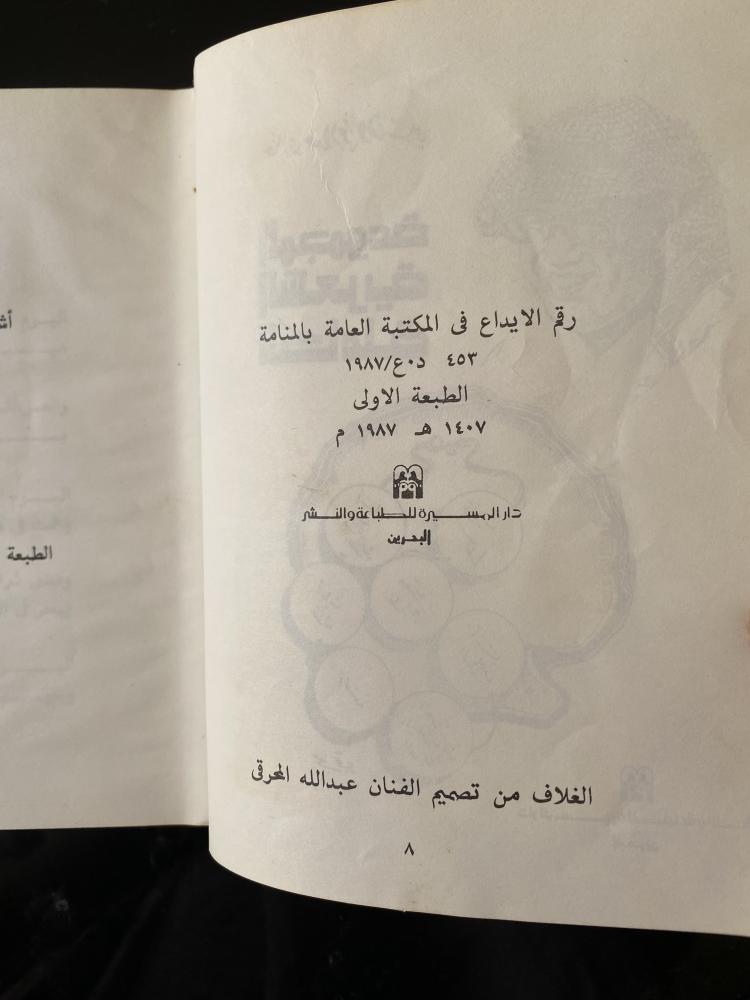 رقم الايداع فى المكتبة العامة بالمنامة
٤٥٣ د٠ع/١٩٨٧
الطبعة الاولى
١٤٠٧ هـ ١٩٨٧ م
دار المسيرة للطباعة والنشر
البحرين
الغلاف من تصميم الفنان عبدالله المحرقى
٨
الطبعة